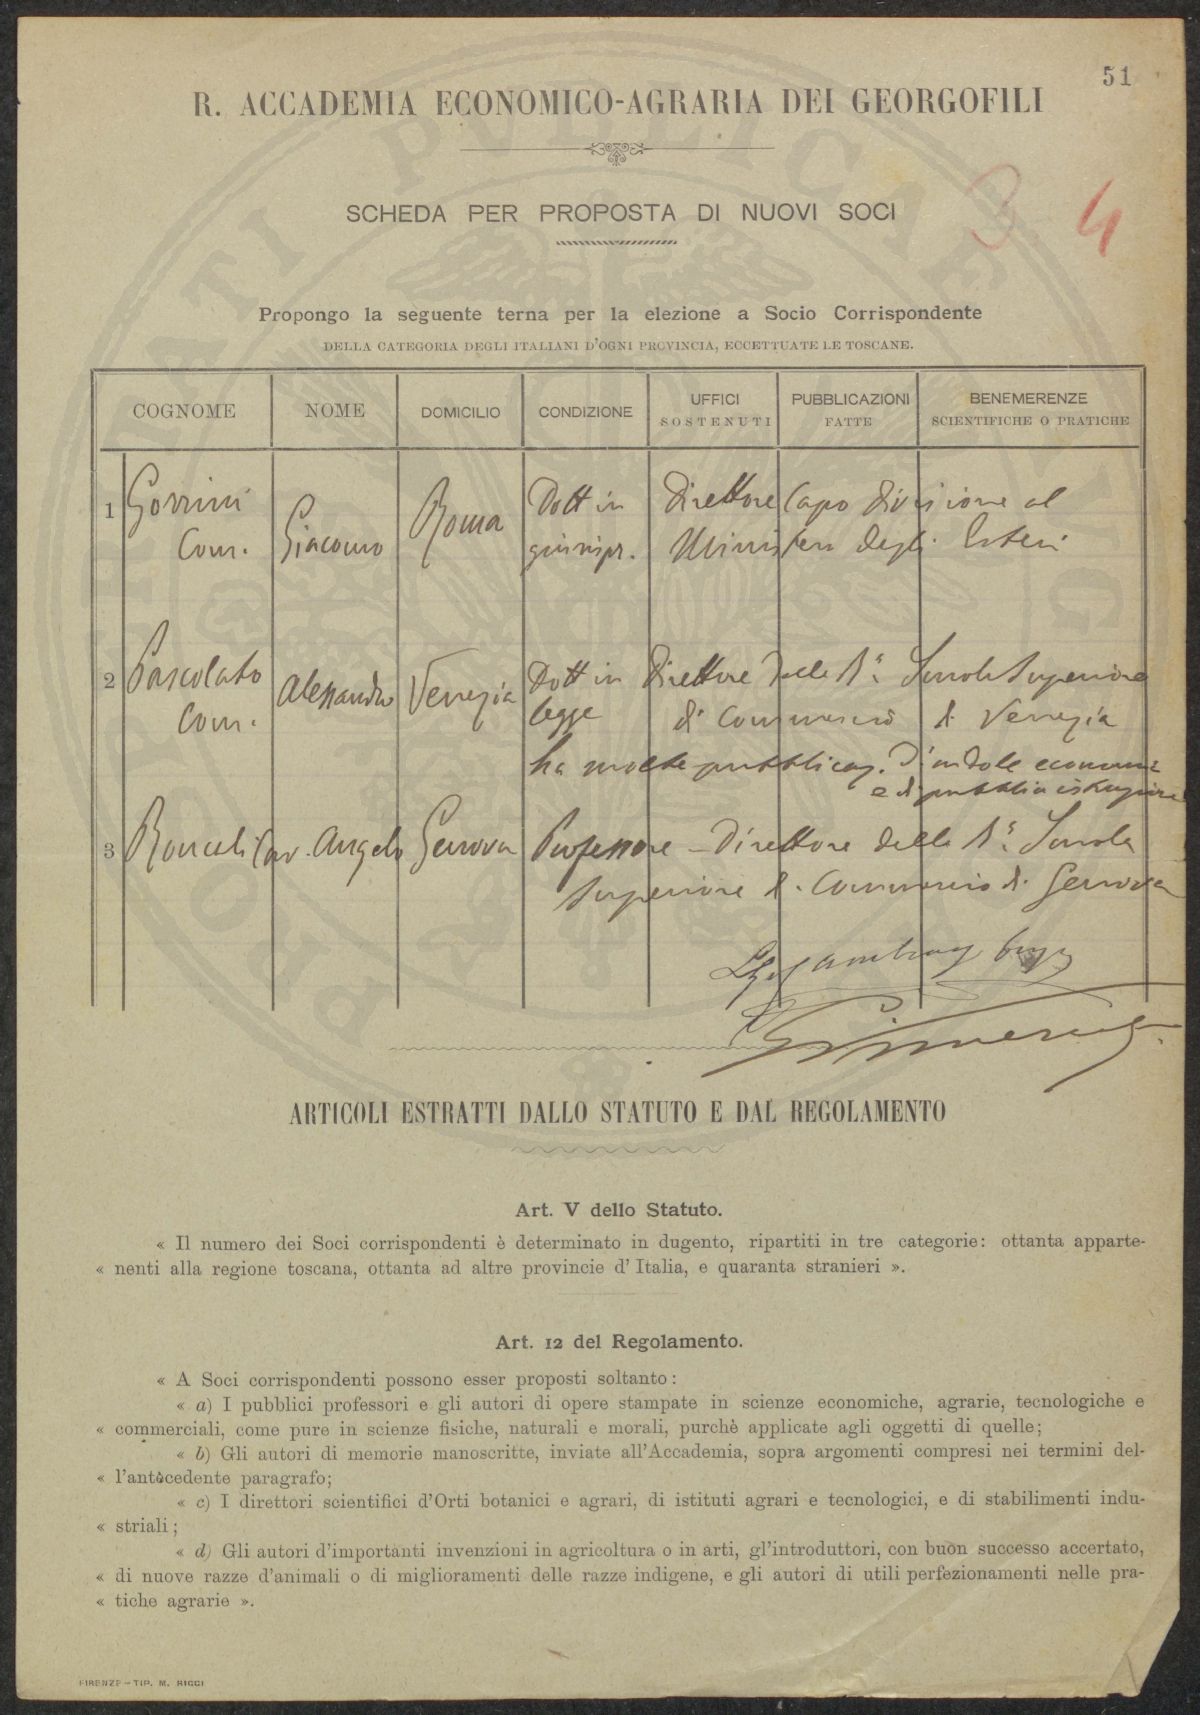 51
R. ACCADEMIA ECONOMICO-AGRARIA DEI GEORGOFILI
3 4
SCHEDA PER PROPOSTA DI NUOVI SOCI
Propongo la seguente terna per la elezione a Socio Corrispondente
DELLA CATEGORIA DEGLI ITALIANI D'OGNI PROVINCIA, ECCETTUATE LE TOSCANE.
COGNOME NOME DOMICILIO CONDIZIONE UFFICI SOSTENUTI PUBBLICAZIONI FATTE BENEMERENZE SCIENTIFICHE O PRATICHE
1 Gorrini Giacomo Roma Dott in Direttore Capo divisione al
Com. giurispr. Ministero degli Esteri
2 Pascolato Alessandro Venezia Dott in Direttore della Ra. Scuola Superiore
Com. legge di Commercio di Venezia
ha molte pubblicaz. d'indole econom
e di pubblica istruzione
3 Roncali Cav. Angelo Genova Professore - Direttore della Ra. Scuola
Superiore di Commercio di Genova
ARTICOLI ESTRATTI DALLO STATUTO E DAL REGOLAMENTO
Art. V dello Statuto.
« Il numero dei Soci corrispondenti è determinato in dugento, ripartiti in tre categorie: ottanta apparte-
« nenti alla regione toscana, ottanta ad altre provincie d'Italia, e quaranta stranieri ».
Art. 12 del Regolamento.
« A Soci corrispondenti possono esser proposti soltanto:
« a) I pubblici professori e gli autori di opere stampate in scienze economiche, agrarie, tecnologiche e
« commerciali, come pure in scienze fisiche, naturali e morali, purchè applicate agli oggetti di quelle;
« b) Gli autori di memorie manoscritte, inviate all'Accademia, sopra argomenti compresi nei termini del-
« l'antecedente paragrafo;
« c) I direttori scientifici d'Orti botanici e agrari, di istituti agrari e tecnologici, e di stabilimenti indu-
« striali;
« d) Gli autori d'importanti invenzioni in agricoltura o in arti, gl'introduttori, con buon successo accertato,
« di nuove razze d'animali o di miglioramenti delle razze indigene, e gli autori di utili perfezionamenti nelle pra-
« tiche agrarie ».
FIRENZE - TIP. M. RICCI